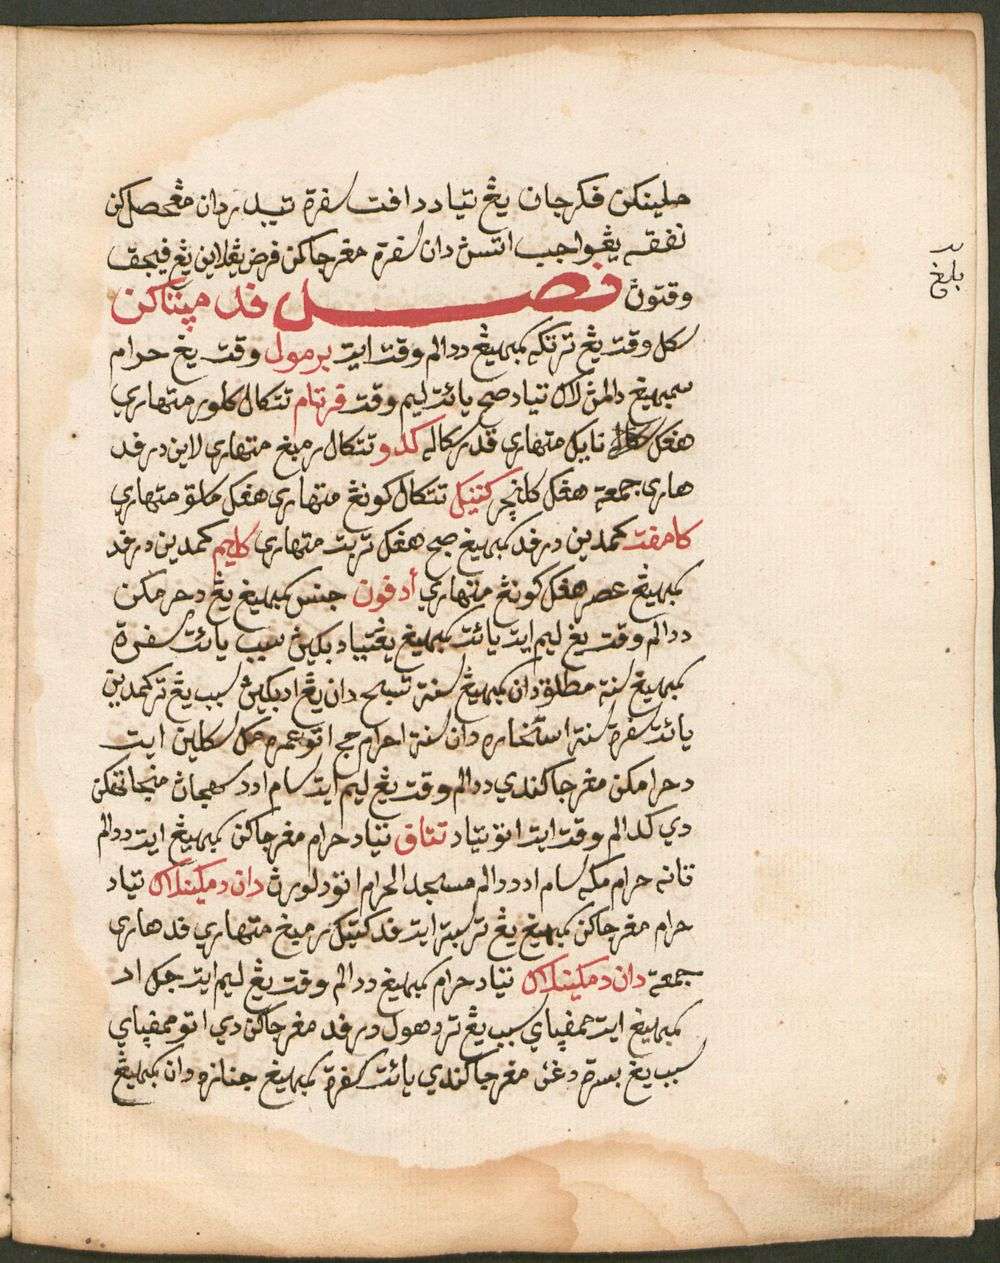 ملينكن فكرجان يڠ تياد دافت سفرة تيدر دان مڠحصلكن
نفقه يڠواجب اتسڽ دان سفرة مڠرجاكن فرض يڠلاين يڠ فيجف
وقتوڽ فصل فد مپتاكن
سكل وقت يڠ ترتڬه سمبهيڠ ددالم وقت ايت برمول وقت يڠ حرام
سمبهيڠ دالمڽ لاڬ تياد صح يائت ليم وقت فرتام تتكال كلور متهاري
هڠڬ نايك متهاري قدر ڬاله كدو تتكال رمبڠ متهاري لاين درفد
هاري جمعة هڠڬ كلنچر كتيڬ تتكال كونڠ متهاري هڠڬ ماسق متهاري
كامفت كمدين درفد سمبهيڠ صبح هڠڬ تربت متهاري كليم كمدين درفد
سمبهيڠ عصر هڠڬ كونڠ متهاري أدفون جنس سمبهيڠ يڠ دحرمكن
ددالم وقت يڠ ليم ايت يائت سمبهيڠ يڠتياد بڬيڽ سبب يائت سفرة
سمبهيڠ سنة مطلق دان سمبهيڠ سنة تسبيح دان يڠ اد بڬيڽ سبب يڠ تركمدين
يائت سفرة سنة استخاره دان سنة احرام حج اتو عمره مك سكلين ايت
دحرامكن مڠرجاكندي ددالم وقت يڠ ليم ايت سام اد د سهجاڽ منجاتهكن
دي كدالم وقت ايت اتو تياد تتاف تياد حرام مڠرجاكن سمبهيڠ ايت ددالم
تانه حرام مكه سام اد ددالم مسجد الحرام اتو دلورڽ دان دمكينلاڬ تياد
حرام مڠرجاكن سمبهيڠ يڠ ترسبت ايت فد كتيك رمبڠ متهاري فد هاري
جمعة دان دمكينلاڬ تياد حرام سمبهيڠ ددالم وقت يڠ ليم ايت جك اد
سمبهيڠ ايت ممفپاي سبب يڠ تردهول درفد مڠرجاكن دي اتو ممفپاي
سبب يڠ بسرة دڠن مڠرجاكندي يائت سفرة سمبهيڠ جنازه دان سمبهيڠ
بلغ